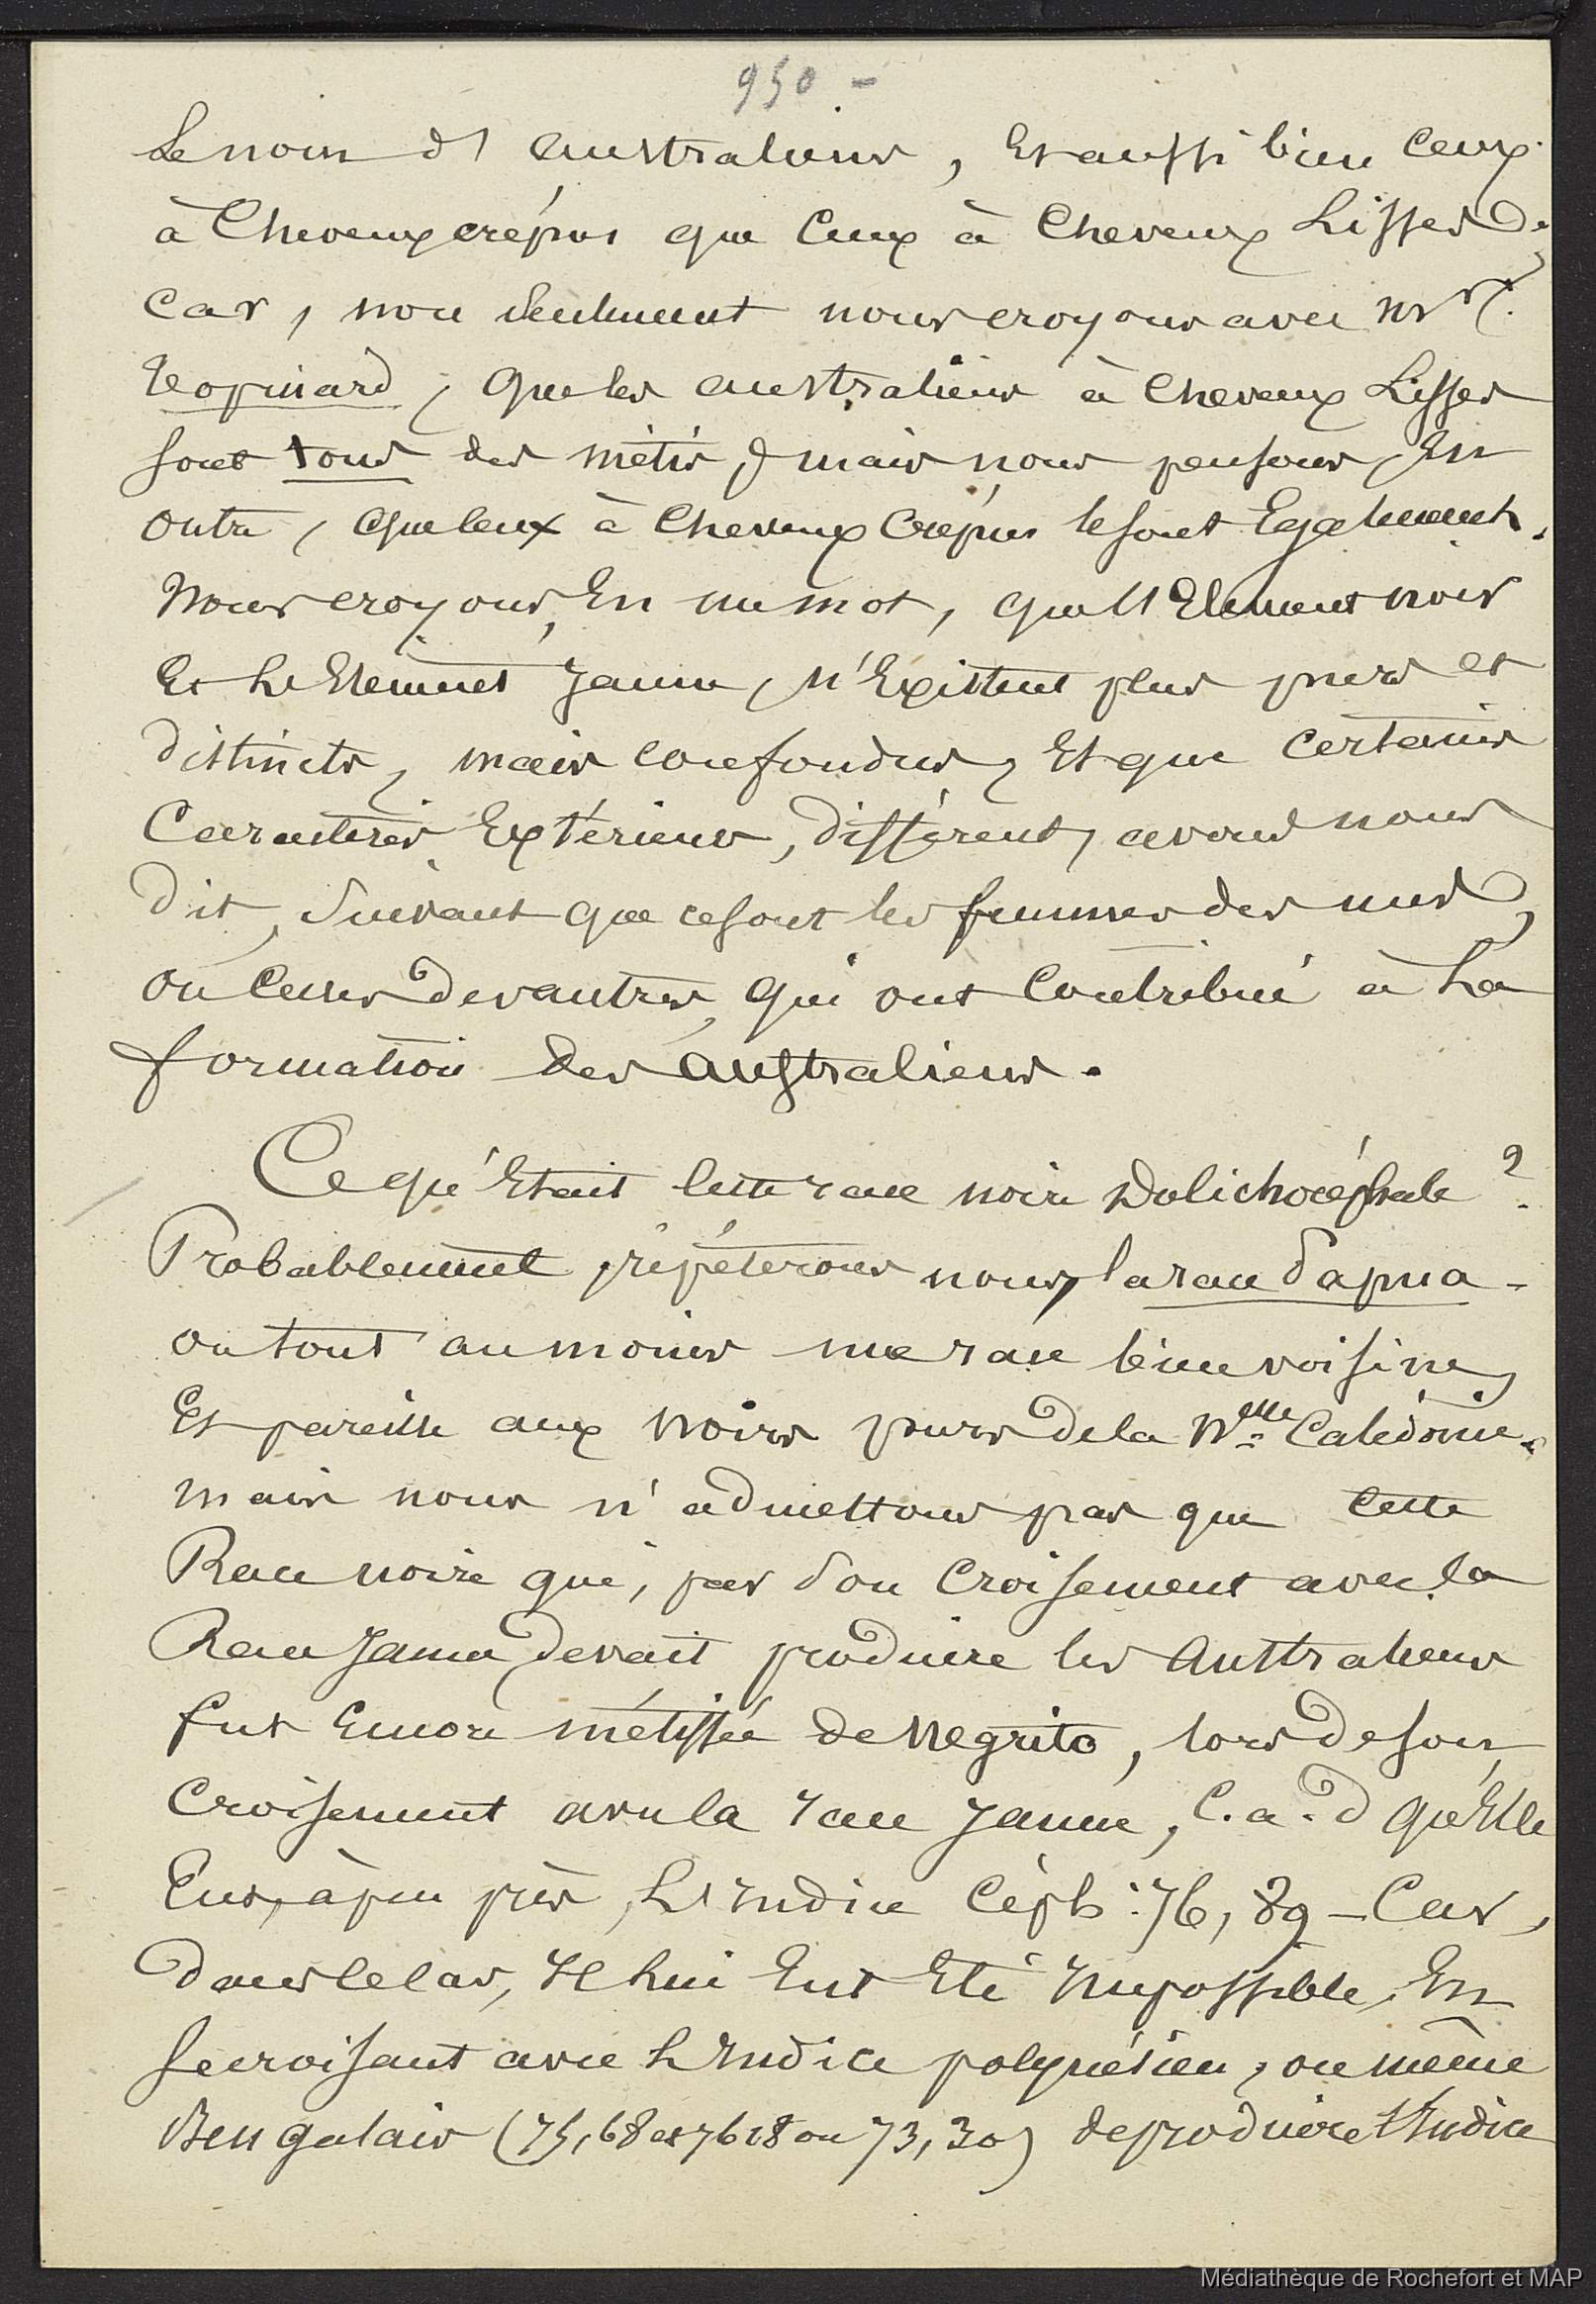 950 -
Le nom d'australiens, Et aussi bien Ceux
à Cheveux crépus que Ceux à Cheveux Lisses
Car, non Seulement nous croyons avec Mr.
Topinard, Que les australiens à Cheveux Lisses
sont tous des métis, mais nous pensons, En
outre, Que Ceux à Cheveux Crépus le sont Egalement.
Nous croyons, En un mot, que l'Element noir
Et L'Element Jaune, n'Existent plus purs et
distincts, mais confondus, Et que Certains
Caractères Extérieurs, diffèrent, avons nous
Dit, Suivant que ce sont les femmes des uns,
ou Celles des autres, Qui ont Contribué à La
formation des Australiens.
Ce qu'Etait Cette race noire Dolichocéphale ?
Probablement, répéterons nous, la race Papua -
ou tout au moins une race bien voisine,
Et pareille aux Noirs purs de la Nelle Calédonie.
mais nous n'admettons pas que Cette
Race noire qui, par Son Croisement avec la
Race Jaune devait produire les Australiens
fut Encore métissée de Negrito, lors de son
Croisement avec la race Jaune, C. a. d qu'Elle
Eut, à peu près, L'Indice Céph: 76,89 - Car,
dans ce cas, Il lui Eut Eté Impossible, En
se croisant avec L'Indice polynésien, ou même
Bengalais (75,68 et 7618 ou 73,30) de produire l'Indice
Médiathèque de Rochefort et MAP